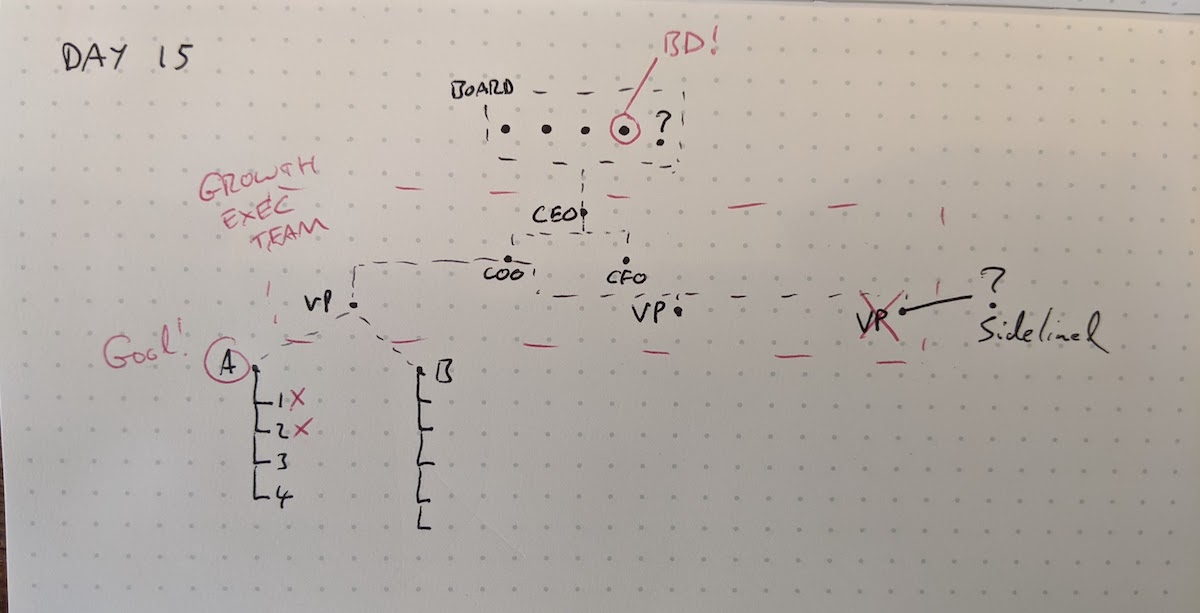 DAY 15
BD!
BOARD
?
GROWTH
EXEC
TEAM
CEO
COO
CFO
VP
VP
VP
?
Sidelined
Goal!
A
B
1 X
2 X
3
4